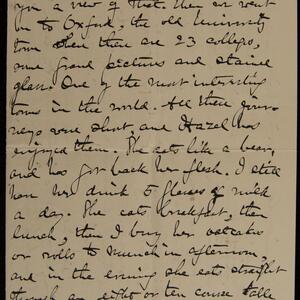 you a view of that. Then we went
in to Oxford, the old university
town where there are 23 colleges,
some grand pictures and stained
glass. One of the most interesting
towns in the world. All these jour-
neys were short, and Hazel has
enjoyed them. She eats like a bear,
and has got back her flesh. I still
have her drink 5 glasses of milk
a day. She eats breakfast, then
lunch, then I buy her oatcakes
or rolls to munch in afternoon,
and in the evening she eats straight
through an eight or ten course table